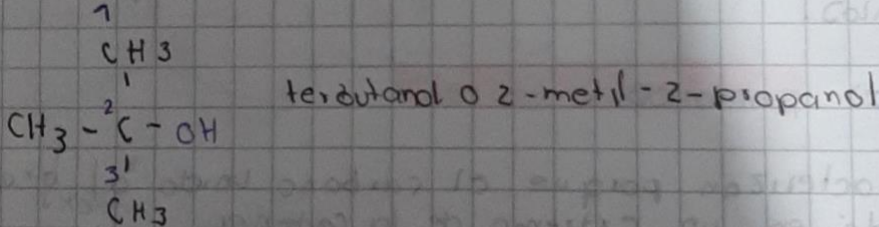 1
CH3
CH3 - 2C - OH
terbutanol o 2-metil-2-propanol
3
CH3